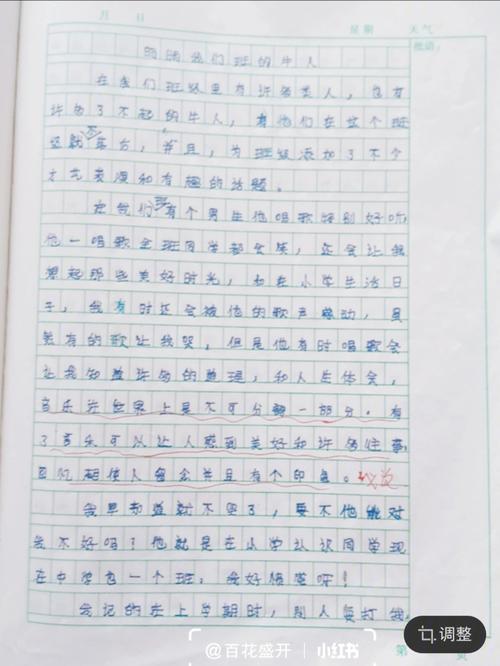 月 日 星期 天气
批语:
晒晒我们班的牛人
在我们班级里有许多类人,也有
许多了不起的牛人,有他们在这个班
级就不车台,并且,为班级添加了不少
才艺表演和有趣的话题。
在我们班有个男生他唱歌特别好听
他一唱歌全班同学都会笑,还会让我
想起那些美好时光,和在小学生活日
子,我有时还会被他的歌声感动,虽
然有的歌让我哭,但是他有时唱歌会
让我知道许多的道理,和人生体会,
音乐在世界上是不可分割一部分。有
了音乐可以让人感到美好和许多往事,
回忆 使人留念并且有个印象。
我早知道就不 了,要不他能对
我不好吗?他就是在小学认识同学现
在中学也一个班,我好 呀!
我记的在上学期时,别人要打我,
调整
@百花盛开 小红书
第 页